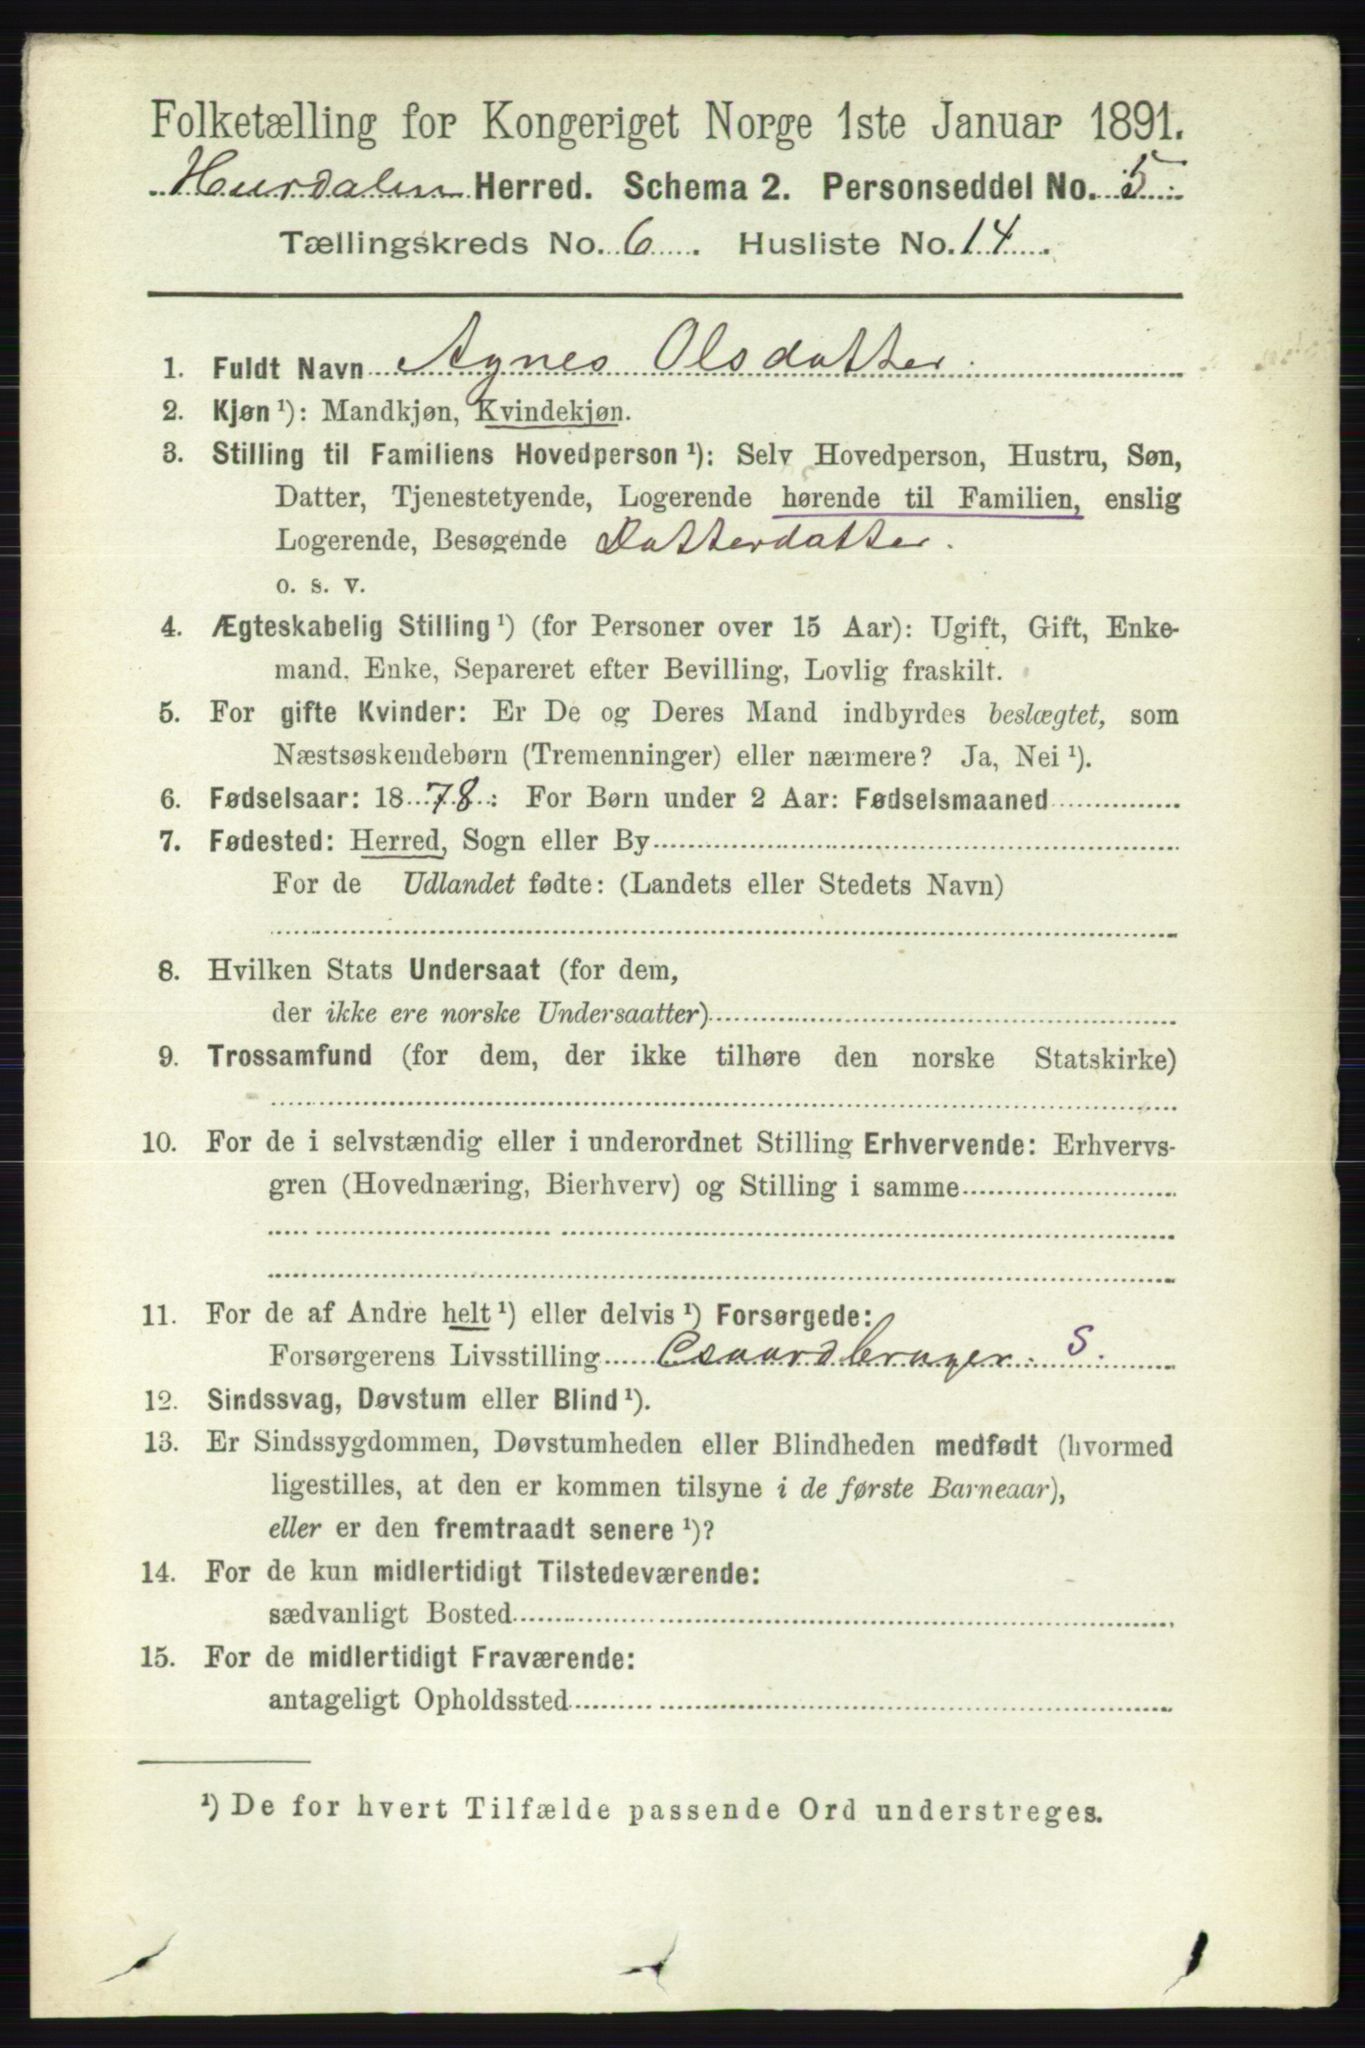 Folketælling for Kongeriget Norge 1ste Januar 1891.
Hurdalen Herred. Schema 2. Personseddel No. 5
Tællingskreds No. 6. Husliste No. 14.
1. Fuldt Navn Agnes Olsdatter.
2. Kjøn ¹): Mandkjøn, Kvindekjøn.
3. Stilling til Familiens Hovedperson ¹): Selv Hovedperson, Hustru, Søn,
Datter, Tjenestetyende, Logerende hørende til Familien, enslig
Logerende, Besøgende Datterdatter.
o. s. v.
4. Ægteskabelig Stilling ¹) (for Personer over 15 Aar): Ugift, Gift, Enke-
mand, Enke, Separeret efter Bevilling, Lovlig fraskilt.
5. For gifte Kvinder: Er De og Deres Mand indbyrdes beslægtet, som
Næstsøskendebørn (Tremenninger) eller nærmere? Ja, Nei ¹).
6. Fødselsaar: 1878: For Børn under 2 Aar: Fødselsmaaned
7. Fødested: Herred, Sogn eller By
For de Udlandet fødte: (Landets eller Stedets Navn)
8. Hvilken Stats Undersaat (for dem,
der ikke ere norske Undersaatter)
9. Trossamfund (for dem, der ikke tilhøre den norske Statskirke)
10. For de i selvstændig eller i underordnet Stilling Erhvervende: Erhvervs-
gren (Hovednæring, Bierhverv) og Stilling i samme
11. For de af Andre helt ¹) eller delvis ¹) Forsørgede:
Forsørgerens Livsstilling Gaardbruger. S.
12. Sindssvag, Døvstum eller Blind ¹).
13. Er Sindssygdommen, Døvstumheden eller Blindheden medfødt (hvormed
ligestilles, at den er kommen tilsyne i de første Barneaar),
eller er den fremtraadt senere ¹)?
14. For de kun midlertidigt Tilstedeværende:
sædvanligt Bosted
15. For de midlertidigt Fraværende:
antageligt Opholdssted
¹) De for hvert Tilfælde passende Ord understreges.